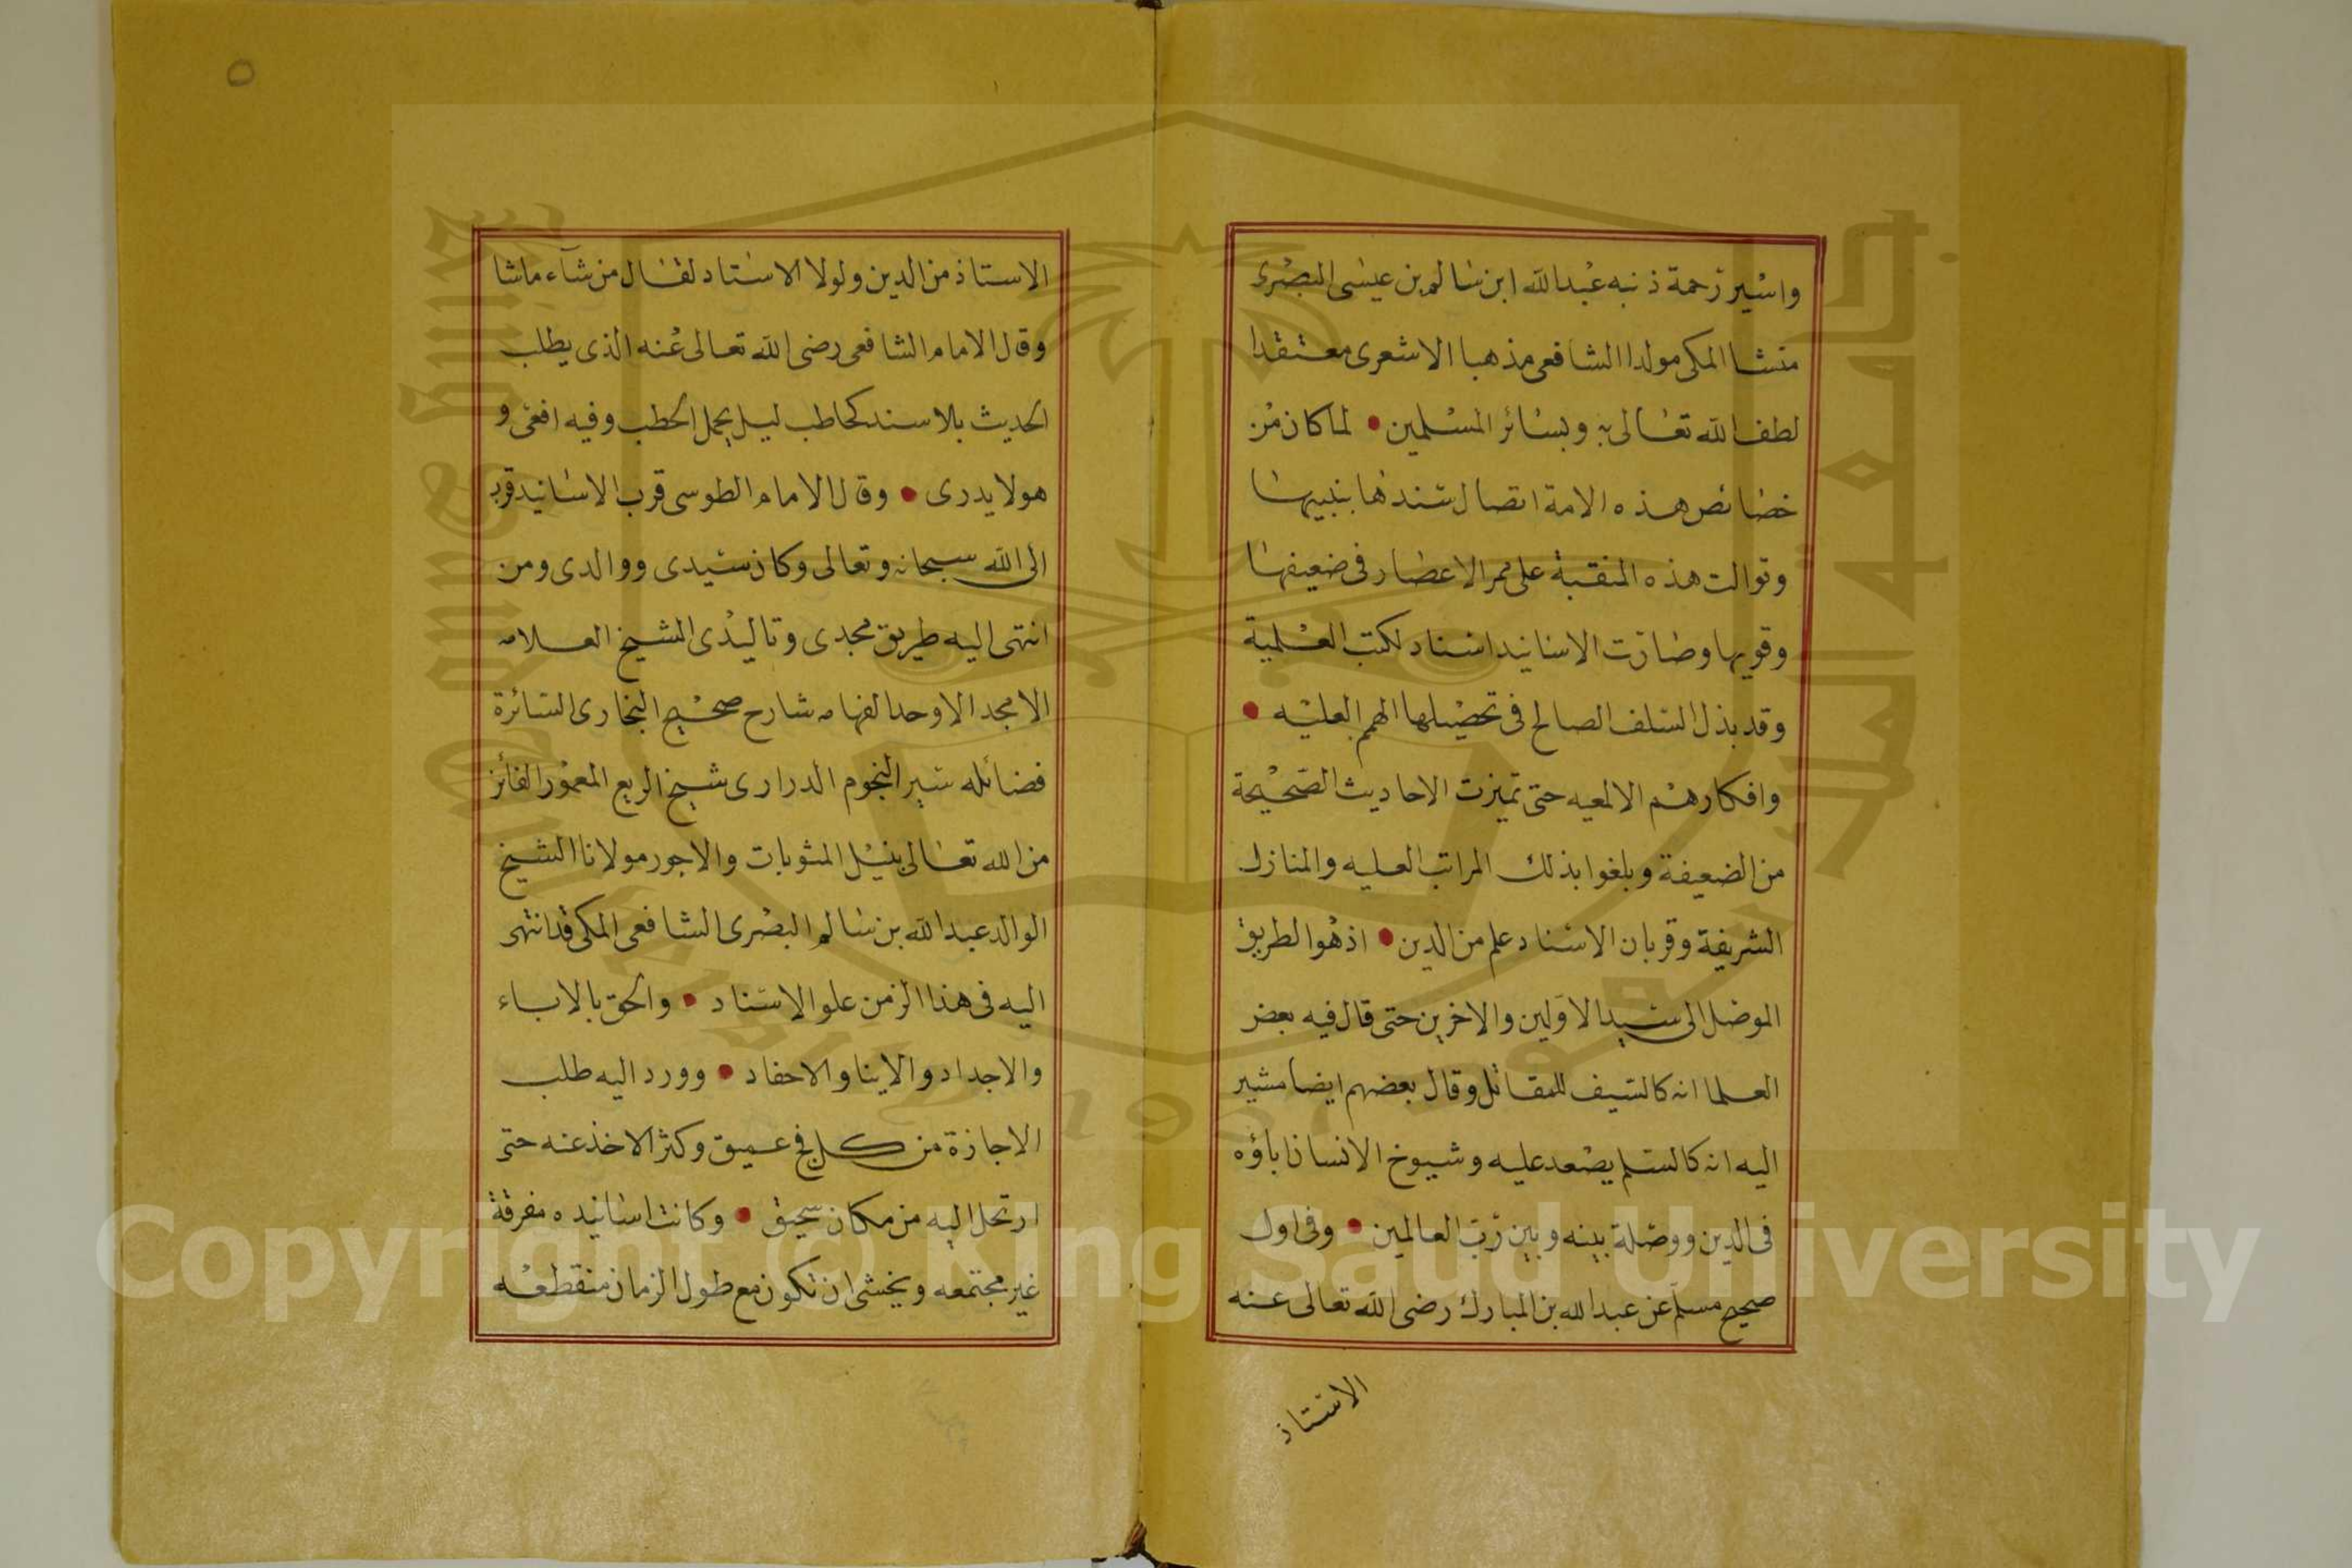 واسير رحمة ذنبه عبد الله ابن سالم بن عيسى البصرى
منشا المكى مولدا الشافعى مذهبا الاشعرى معتقدا
لطف الله تعالى به وبسائر المسلمين • لما كان من
خصائص هذه الامة اتصال سندها بنبيها
وتوالت هذه المنقبة على ممر الاعصار فى ضعيفها
وقويها وصارت الاسانيد اسناد لكتب العلمية
وقد بذل السلف الصالح فى تحصيلها الهمم العليه •
وافكارهم الالمعيه حتى تميزت الاحاديث الصحيحة
من الضعيفة وبلغوا بذلك المراتب العليه والمنازل
الشريفة وقربان الاسناد علم من الدين • اذ هو الطريق
الموصل الى سيد الاولين والاخرين حتى قال فيه بعض
العلما انه كالسيف للمقاتل وقال بعضهم ايضا مشير
اليه انه كالسلم يصعد عليه وشيوخ الانسان اباؤه
فى الدين ووصلة بينه وبين رب العالمين • وفى اول
صحيح مسلم عن عبد الله بن المبارك رضى الله تعالى عنه
الاستاذ
٥
الاستاذ من الدين ولولا الاستاد لقال من شآء ماشا
وقال الامام الشافعى رضى الله تعالى عنه الذى يطلب
الحديث بلا سند كحاطب ليل يحمل الحطب وفيه افعى و
هو لا يدرى • وقال الامام الطوسى قرب الاسانيد قرب
الى الله سبحانه وتعالى وكان سيدى ووالدى ومن
انتهى اليه طريق مجدى وتاليدى الشيخ العلامه
الامجد الاوحد الفهامه شارح صحيح البخارى السائرة
فضائله سير النجوم الدرارى شيخ الربع المعمور الفائز
من الله تعالى بنيل المثوبات والاجور مولانا الشيخ
الوالد عبد الله بن سالم البصرى الشافعى المكى قد انتهى
اليه فى هذا الزمن علو الاسناد • والحق بالاباء
والاجداد والابنا والاحفاد • وورد اليه طلب
الاجازة من كل فج عميق وكثر الاخذ عنه حتى
ارتحل اليه من مكان سحيق • وكانت اسانيده مفرقة
غير مجتمعه ويخشى ان تكون مع طول الزمان منقطعه
Copyright © King Saud University